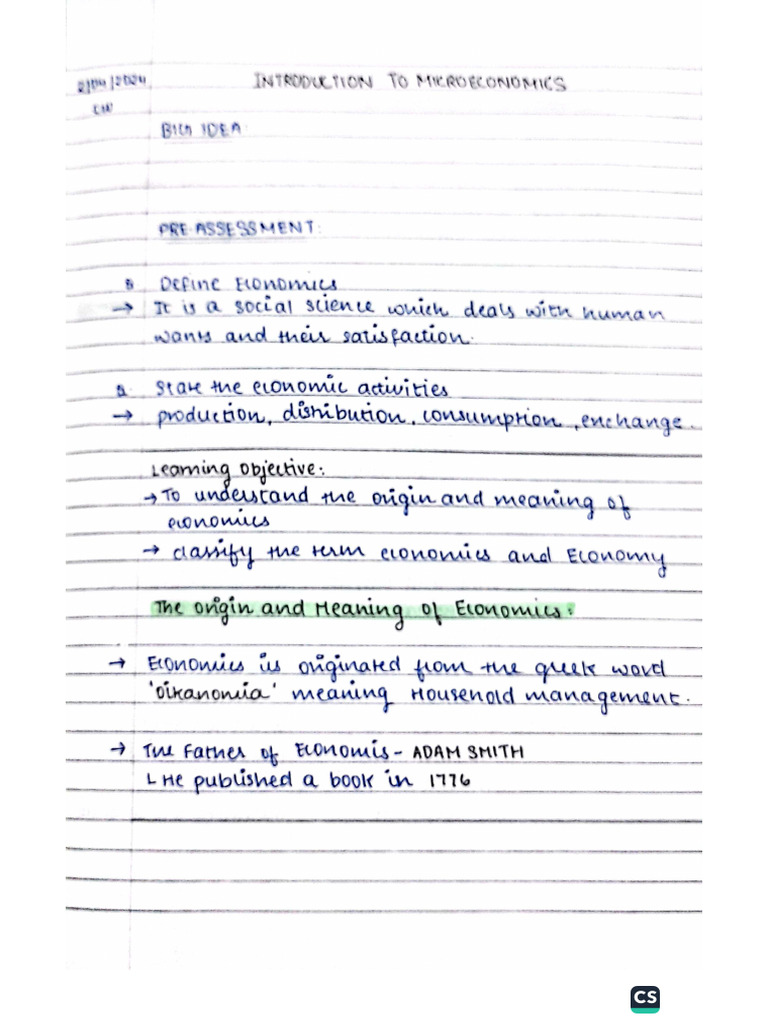 2/04/2024
INTRODUCTION TO MICROECONOMICS
CW
BIG IDEA
PRE ASSESSMENT:
Q Define Economics
→ It is a social science which deals with human
wants and their satisfaction.
Q. State the economic activities
→ production, distribution, consumption, exchange.
Learning Objective:
→ To understand the origin and meaning of
economics
→ classify the term economics and Economy
The Origin and Meaning of Economics:
→ Economics is originated from the greek word
'oikanomia' meaning Household management.
→ The Father of Economis - ADAM SMITH
└ He published a book in 1776
CS